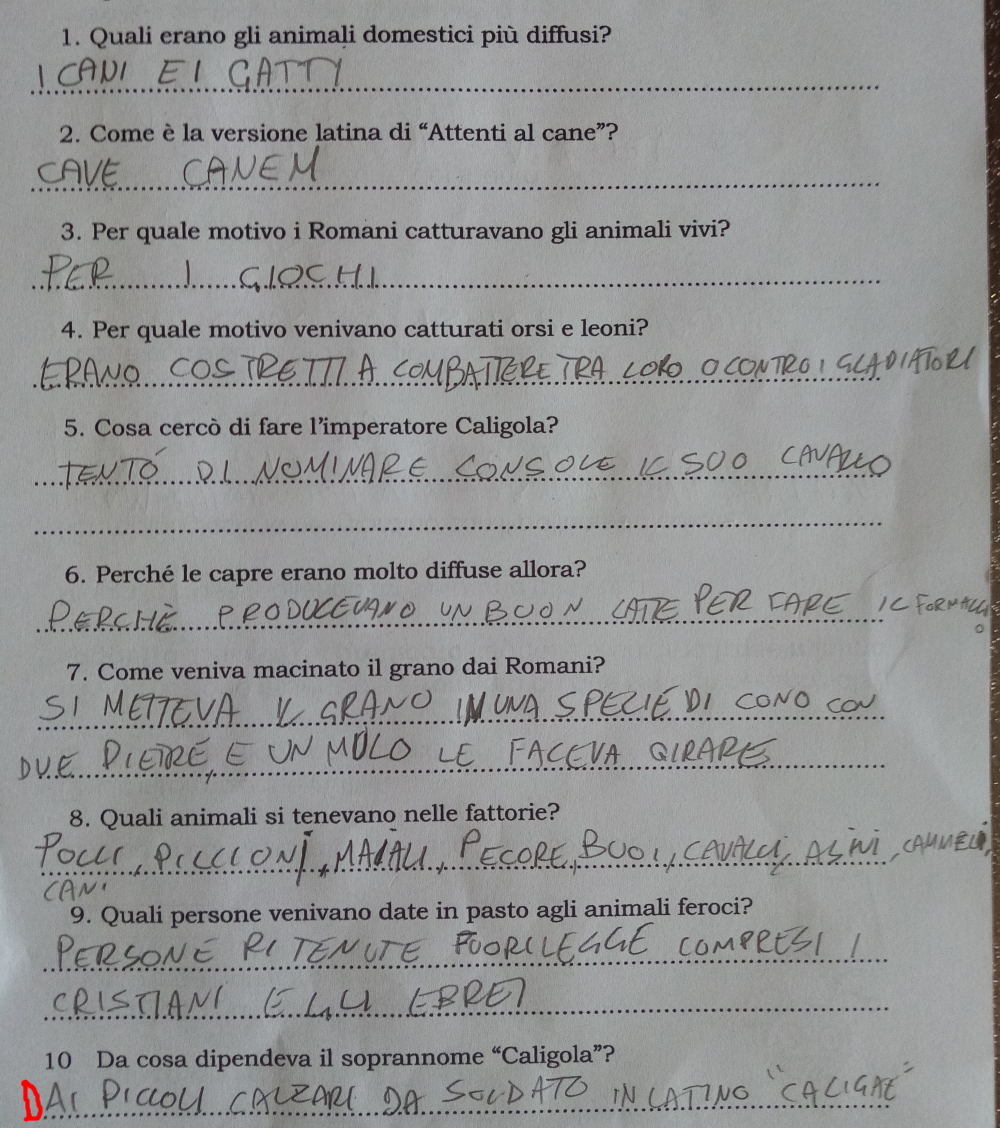 1. Quali erano gli animali domestici più diffusi?
I CANI E I GATTI
2. Come è la versione latina di “Attenti al cane”?
CAVE CANEM
3. Per quale motivo i Romani catturavano gli animali vivi?
PER I GIOCHI
4. Per quale motivo venivano catturati orsi e leoni?
ERANO COSTRETTI A COMBATTERE TRA LORO O CONTRO I GLADIATORI
5. Cosa cercò di fare l’imperatore Caligola?
TENTÓ DI NOMINARE CONSOLE IL SUO CAVALLO
6. Perché le capre erano molto diffuse allora?
PERCHÈ PRODUCEVANO UN BUON LATTE PER FARE IL FORMAGGIO
7. Come veniva macinato il grano dai Romani?
SI METTEVA IL GRANO IN UNA SPECIE DI CONO CON
DUE PIETRE, E UN MULO LE FACEVA GIRARE
8. Quali animali si tenevano nelle fattorie?
POLLI, PICCIONI, MAIALI, PECORE, BUOI, CAVALLI, ASINI, CAMMELLI,
CANI
9. Quali persone venivano date in pasto agli animali feroci?
PERSONE RITENUTE FUORILEGGE COMPRESI I
CRISTIANI E GLI EBREI
10 Da cosa dipendeva il soprannome “Caligola”?
DAI PICCOLI CALZARI DA SOLDATO IN LATINO "CALIGAE"